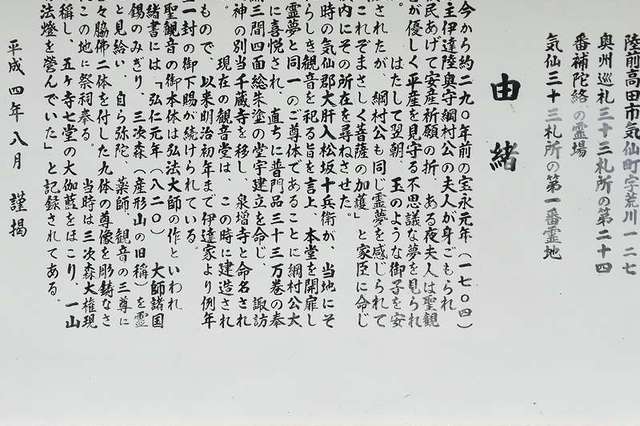 陸前高田市気仙町字荒川一二七
奥州巡礼三十三札所の第二十四
番補陀絡の霊場
気仙三十三札所の第一番霊地
由緒
今から約二九〇年前の宝永元年(一七〇四)
主伊達陸奥守綱村公の夫人が身ごもられ
民あげて安産祈願の折、ある夜夫人は聖観
が優しく平産を見守る不思議な夢を見られ
はたして翌朝、玉のような御子を安
これぞまさしく菩薩の加護」と家臣に命じ
されたが、綱村公も同じ霊夢を感じられて
内にその所在を尋ねさせた。
時の気仙郡大肝入松坂十兵衛が、当地にそ
らしき観音を祀る旨を言上、本堂を開扉し
霊夢と同一のご尊体であることに綱村公大
に喜悦され、直ちに普門品三十三万巻の奉
三間四面総朱塗の堂宇建立を命じ、諏訪
神の別当千蔵寺を移し、泉増寺と命名され
現在の観音堂は、この時に建造され
もので、以来明治初年まで伊達家より例年
一封の御下賜が続けられている。
聖観音の御本体は弘法大師の作といわれ
緒書には「弘仁元年(八二〇)大師諸国
錫のみぎり、三次森(産形山の旧称)を霊
と見給い、自ら弥陀、薬師、観音の三尊に
々脇佛二体を付した九体の尊像を彫鋳なさ
この地に祭祠奉る。当時は三次森大権現
称し、五ヶ寺七堂の大伽藍をほこり、一山
法燈を営んでいた」と記録されてある。
平成四年八月 謹掲